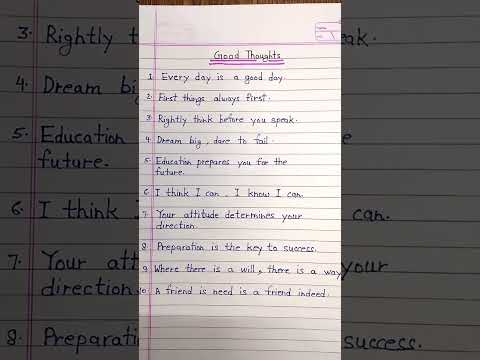 Good Thoughts
1. Every day is a good day.
2. First things always first.
3. Rightly think before you speak.
4. Dream big, dare to fail.
5. Education prepares you for the
future.
6. I think I can, I know I can.
7. Your attitude determines your
direction.
8. Preparation is the key to success.
9. Where there is a will, there is a way
10. A friend is need is a friend indeed.
3. Rightly
4. Dream big
5. Education
future.
6. I think
7. Your
direction
8. Preparation
can.
your
success.